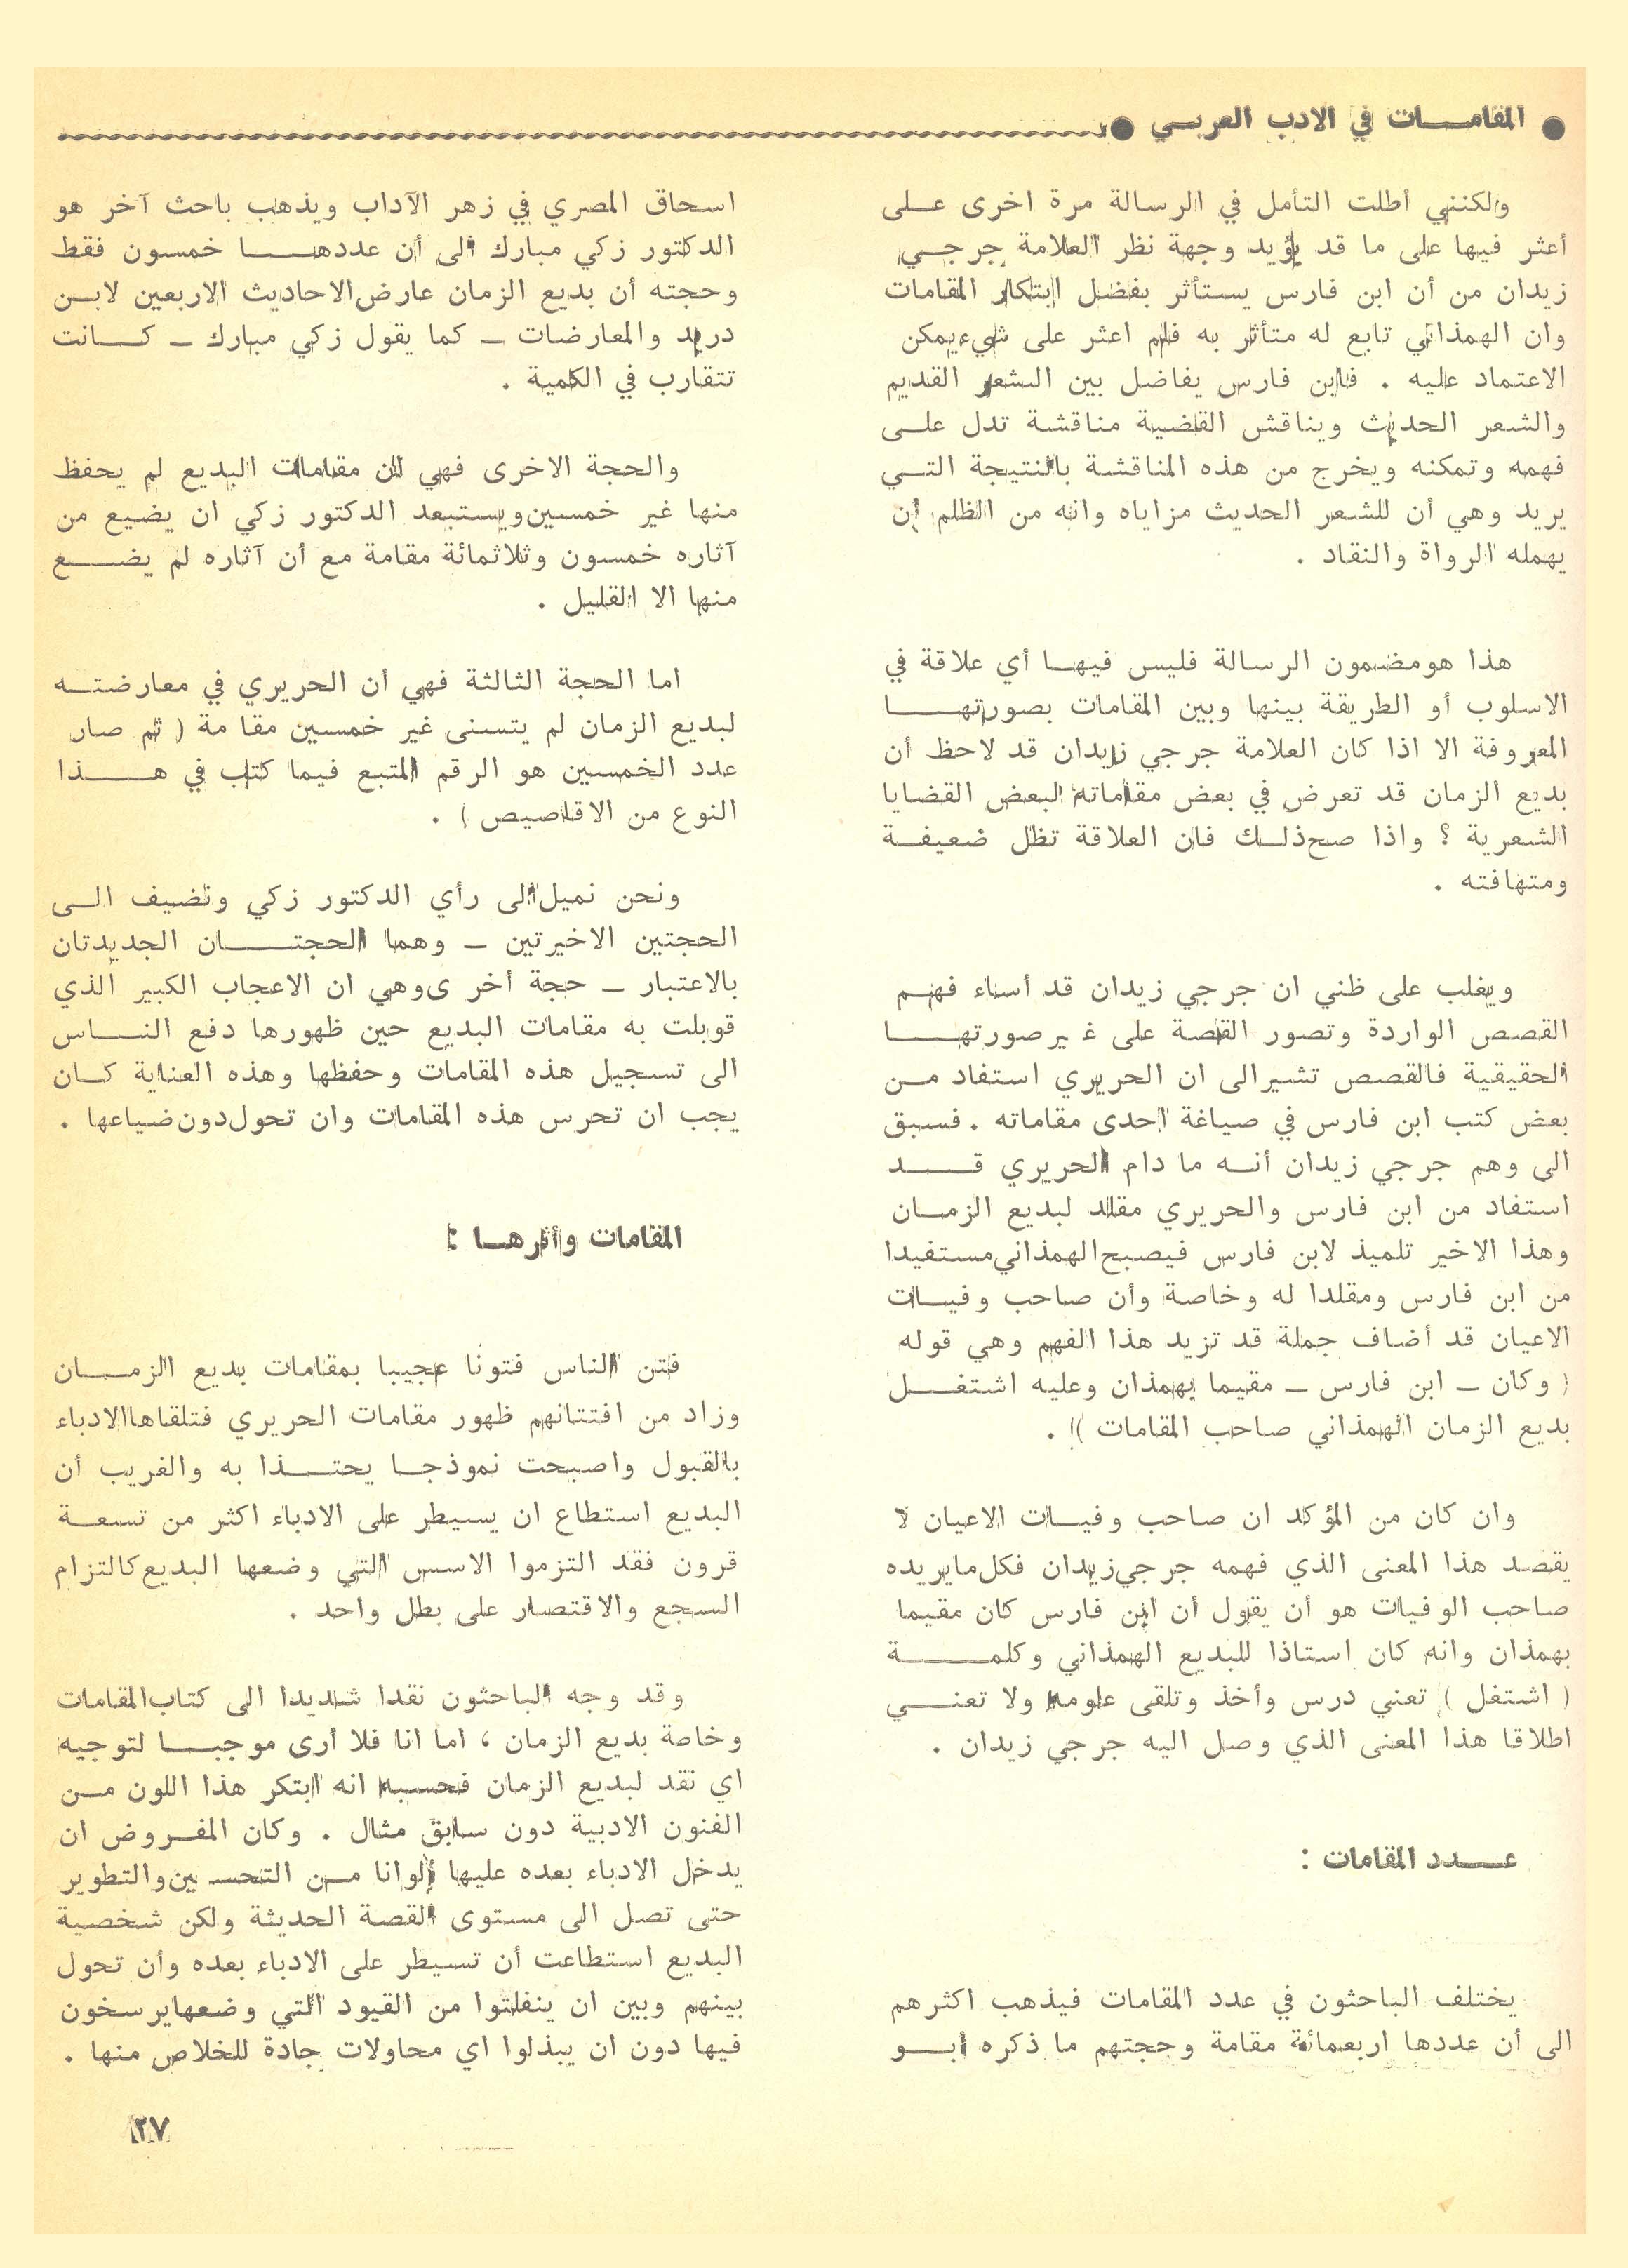 ● المقامـــات في الادب العربـــي ●
ولكنني أطلت التأمل في الرسالة مرة اخرى علـى
أعثر فيها على ما قد يؤيد وجهة نظر العلامة جرجـي
زيدان من أن ابن فارس يستأثر بفضل ابتكار المقامات
وان الهمذاني تابع له متأثر به فلم اعثر على شيء يمكن
الاعتماد عليه . فابن فارس يفاضل بين الشعر القديم
والشعر الحديث ويناقش القضية مناقشة تدل علـى
فهمه وتمكنه ويخرج من هذه المناقشة بالنتيجة التـي
يريد وهي أن للشعر الحديث مزاياه وانه من الظلم ان
يهمله الرواة والنقاد .
هذا هو مضمون الرسالة فليس فيهـا أي علاقة في
الاسلوب أو الطريقة بينها وبين المقامات بصورتهـا
المعروفة الا اذا كان العلامة جرجي زيدان قد لاحظ أن
بديع الزمان قد تعرض في بعض مقاماته لبعض القضايا
الشعرية ؟ واذا صح ذلـك فان العلاقة تظل ضعيفـة
ومتهافته .
ويغلب على ظني ان جرجي زيدان قد أساء فهـم
القصص الواردة وتصور القصة على غير صورتهـا
الحقيقية فالقصص تشير الى ان الحريري استفاد مـن
بعض كتب ابن فارس في صياغة احدى مقاماته . فسبق
الى وهم جرجي زيدان أنـه ما دام الحريري قـد
استفاد من ابن فارس والحريري مقلد لبديع الزمـان
وهذا الاخير تلميذ لابن فارس فيصبح الهمذاني مستفيدا
من ابن فارس ومقلدا له وخاصة وأن صاحب وفيـات
الاعيان قد أضاف جملة قد تزيد هذا الفهم وهي قوله
( وكان ــ ابن فارس ــ مقيما بهمذان وعليه اشتغـل
بديع الزمان الهمذاني صاحب المقامات ) .
وان كان من المؤكد ان صاحب وفيـات الاعيان لا
يقصد هذا المعنى الذي فهمه جرجي زيدان فكل ما يريده
صاحب الوفيات هو أن يقول أن ابن فارس كان مقيما
بهمذان وانه كان استاذا للبديع الهمذاني وكلمـــة
( اشتغل ) تعني درس وأخذ وتلقى علومه ولا تعنـي
اطلاقا هذا المعنى الذي وصل اليه جرجي زيدان .
عـــدد المقامات :
يختلف الباحثون في عدد المقامات فيذهب اكثرهم
الى أن عددها اربعمائة مقامة وحجتهم ما ذكره ابـو
اسحاق المصري في زهر الآداب ويذهب باحث آخر هو
الدكتور زكي مبارك الى أن عددهـــا خمسون فقط
وحجته أن بديع الزمان عارض الاحاديث الاربعين لابـن
دريد والمعارضات ــ كما يقول زكي مبارك ــ كـانت
تتقارب في الكمية .
والحجة الاخرى فهي لان مقامات البديع لم يحفظ
منها غير خمسين ويستبعد الدكتور زكي ان يضيع من
آثاره خمسون وثلاثمائة مقامة مع أن آثاره لم يضـــع
منها الا القليل .
اما الحجة الثالثة فهي أن الحريري في معارضتـه
لبديع الزمان لم يتسنى غير خمسين مقامة ( ثم صار
عدد الخمسين هو الرقم المتبع فيما كتب في هـــذا
النوع من الاقاصيص ) .
ونحن نميل الى رأي الدكتور زكي ونضيف الـى
الحجتين الاخيرتين ــ وهما الحجتـــان الجديدتان
بالاعتبار ــ حجة أخرى وهي ان الاعجاب الكبير الذي
قوبلت به مقامات البديع حين ظهورها دفع النـاس
الى تسجيل هذه المقامات وحفظها وهذه العناية كـان
يجب ان تحرس هذه المقامات وان تحول دون ضياعها .
المقامات وأثرهـا :
فتن الناس فتونا عجيبا بمقامات بديع الزمـان
وزاد من افتتانهم ظهور مقامات الحريري فتلقاها الادباء
بالقبول واصبحت نموذجـا يحتـذا به والغريب أن
البديع استطاع ان يسيطر على الادباء اكثر من تسعـة
قرون فقد التزموا الاسس التي وضعها البديع كالتزام
السجع والاقتصار على بطل واحد .
وقد وجه الباحثون نقدا شديدا الى كتاب المقامات
وخاصة بديع الزمان ، اما انا فلا أرى موجبـا لتوجيه
اي نقد لبديع الزمان فحسبه انه ابتكر هذا اللون مـن
الفنون الادبية دون سابق مثال . وكان المفـروض ان
يدخل الادباء بعده عليها ألوانا مـن التحسين والتطوير
حتى تصل الى مستوى القصة الحديثة ولكن شخصية
البديع استطاعت أن تسيطر على الادباء بعده وأن تحول
بينهم وبين ان ينفلتوا من القيود التي وضعها يرسخون
فيها دون ان يبذلوا اي محاولات جادة للخلاص منها .
٢٧